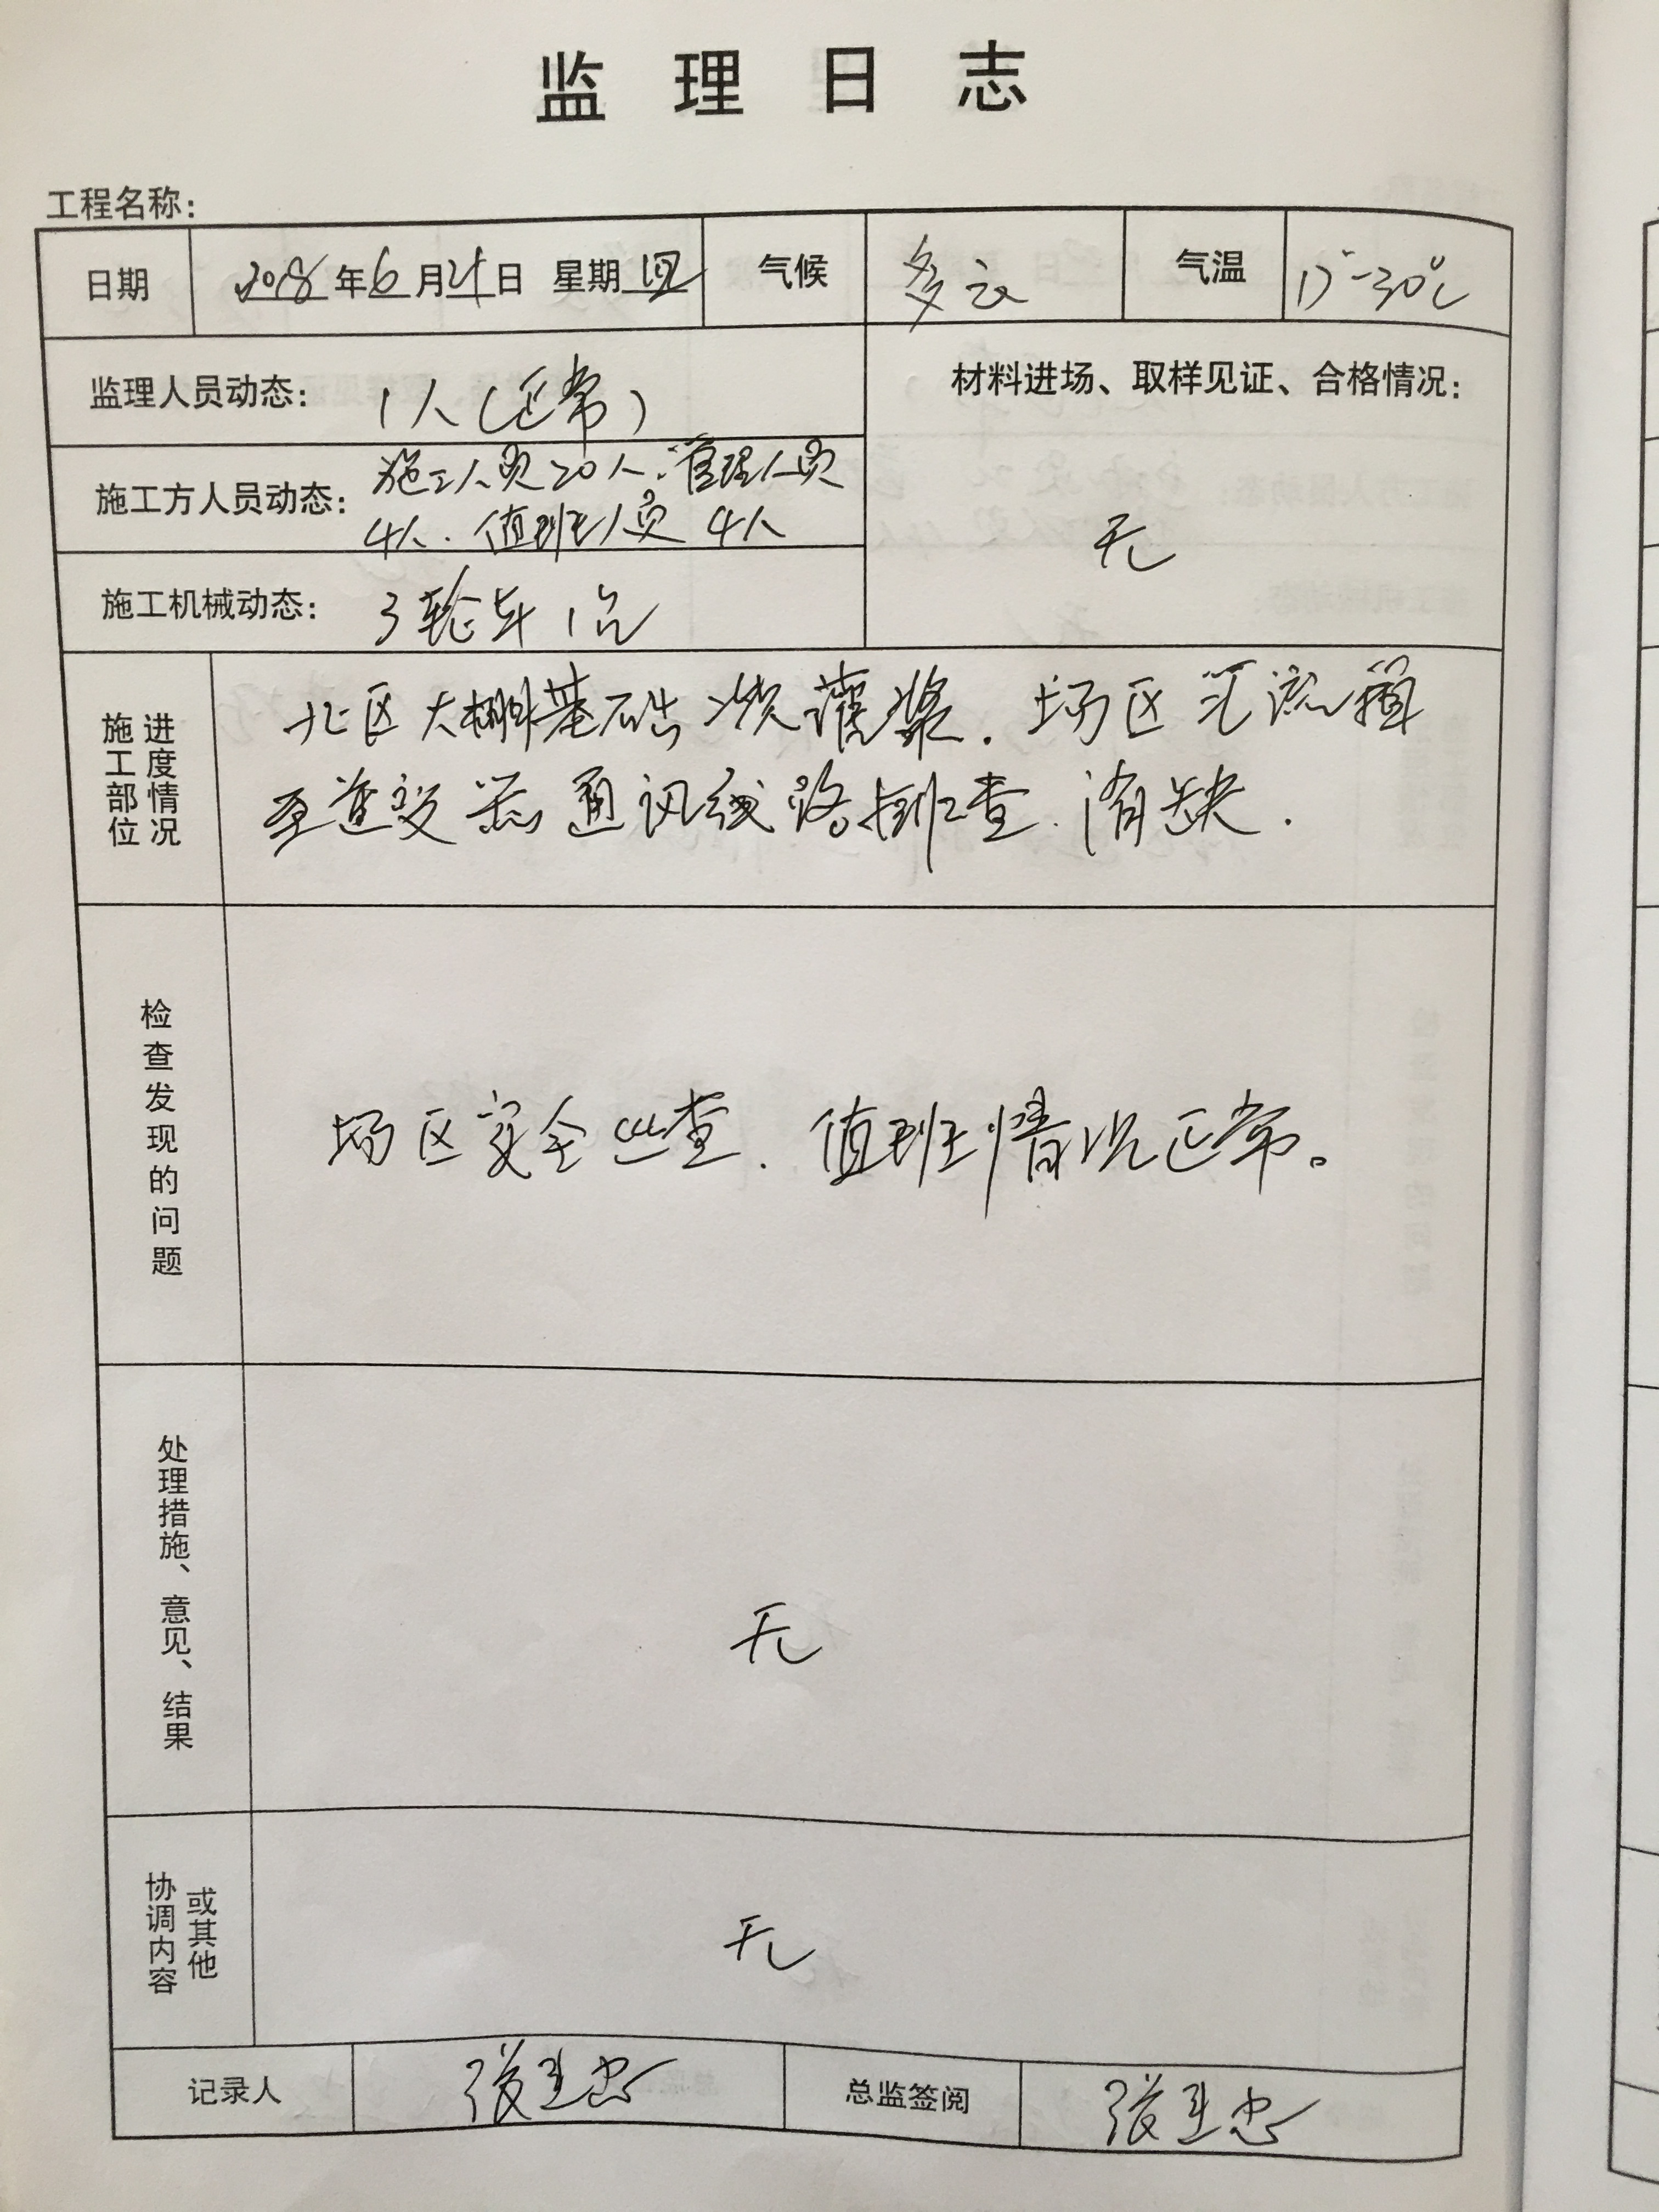 监理日志
工程名称：
日期 2018年6月21日 星期四 气候 多云 气温 17°-30℃
监理人员动态： 1人（正常）
材料进场、取样见证、合格情况：
施工方人员动态： 施工人员20人.管理人员
4人.值班人员 4人
无
施工机械动态： 3轮车1台
施工部位
进度情况
北区大棚基础 灌浆. 场区汇流箱
至逆变器通讯线路排查.消缺.
检查发现的问题
场区安全巡查. 值班情况正常。
处理措施、意见、结果
无
协调内容
或其他
无
记录人 张 忠 总监签阅 张 忠